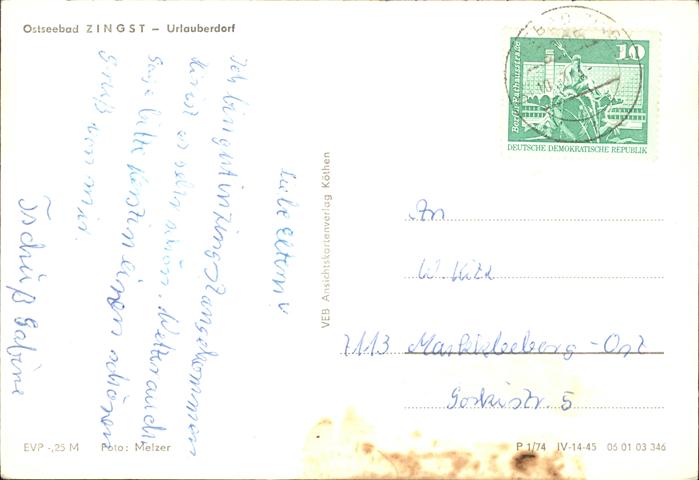 Ostseebad ZINGST – Urlauberdorf
Liebe Eltern!
Ich bin gut in Zingst angekommen
hier ist es sehr schön. Wetter auch.
Sage bitte Kerstin einen schönen
Gruß von mir.
Tschüß Sabine
EVP -,25 M Foto: Melzer
VEB Ansichtskartenverlag Köthen
10
Berlin, Rathausstraße
DEUTSCHE DEMOKRATISCHE REPUBLIK
An
W.
7113 Markkleeberg - Ost
Gorkistr. 5
P 1/74 IV-14-45 06 01 03 346